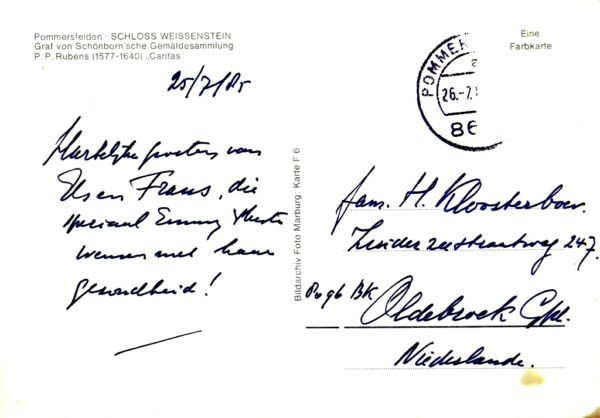 Pommersfelden · SCHLOSS WEISSENSTEIN
Graf von Schönborn'sche Gemäldesammlung
P. P. Rubens (1577-1640) „Caritas"
Eine
Farbkarte
25/7/85
POMMER
26.-7.
86
Hartelijke groeten van
Elsen Frans, die
speciaal Emmy
wensen met haar
gezondheid!
Bildarchiv Foto Marburg: Karte F 6
fam. H. Kloosterboer.
Zuiderzeestraatweg 247.
BK
Oldebroek Gld.
Niederlande.